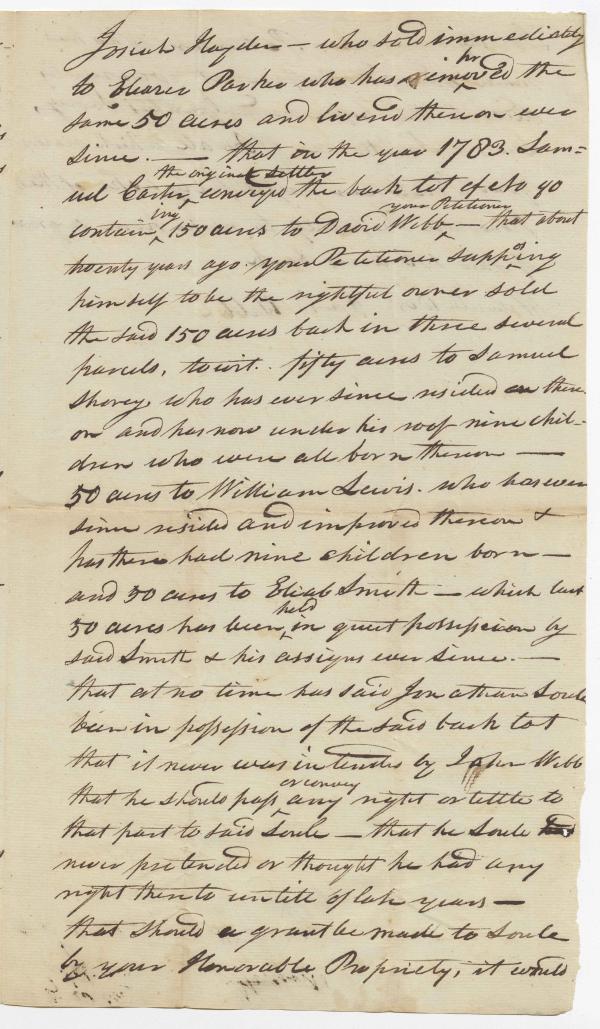 Josiah Hayden — who sold immediately
to Eleazer Parker who has improved the
same 50 acres and lived thereon ever
since. — that in the year 1783. Sam=
uel Carter, the original settler conveyed the back lot of No 90
containing 150 acres to David Webb your Petitioner — that about
twenty years ago. your Petitioner supposing
himself to be the rightful owner sold
the said 150 acres back in three several
parcels, towit.. fifty acres to Samuel
Shorey, who has ever since resided there-
on and has now under his roof nine chil-
dren who were all born thereon —
50 acres to William Lewis. who has ever
since resided and improved thereon &
has there had nine children born —
and 50 acres to Eliab Smith — which last
50 acres has been held in quiet possession by
said Smith & his assigns ever since. —
that at no time has said Jonathan Soule
been in possession of the said back lot
that it never was intended by John Webb
that he should pass or convey any right or tittle to
that part to said Soule — that he Soule
never pretended or thought he had any
right thereto until of late years —
that should a grant be made to Soule
by your Honorable Propriety, it would